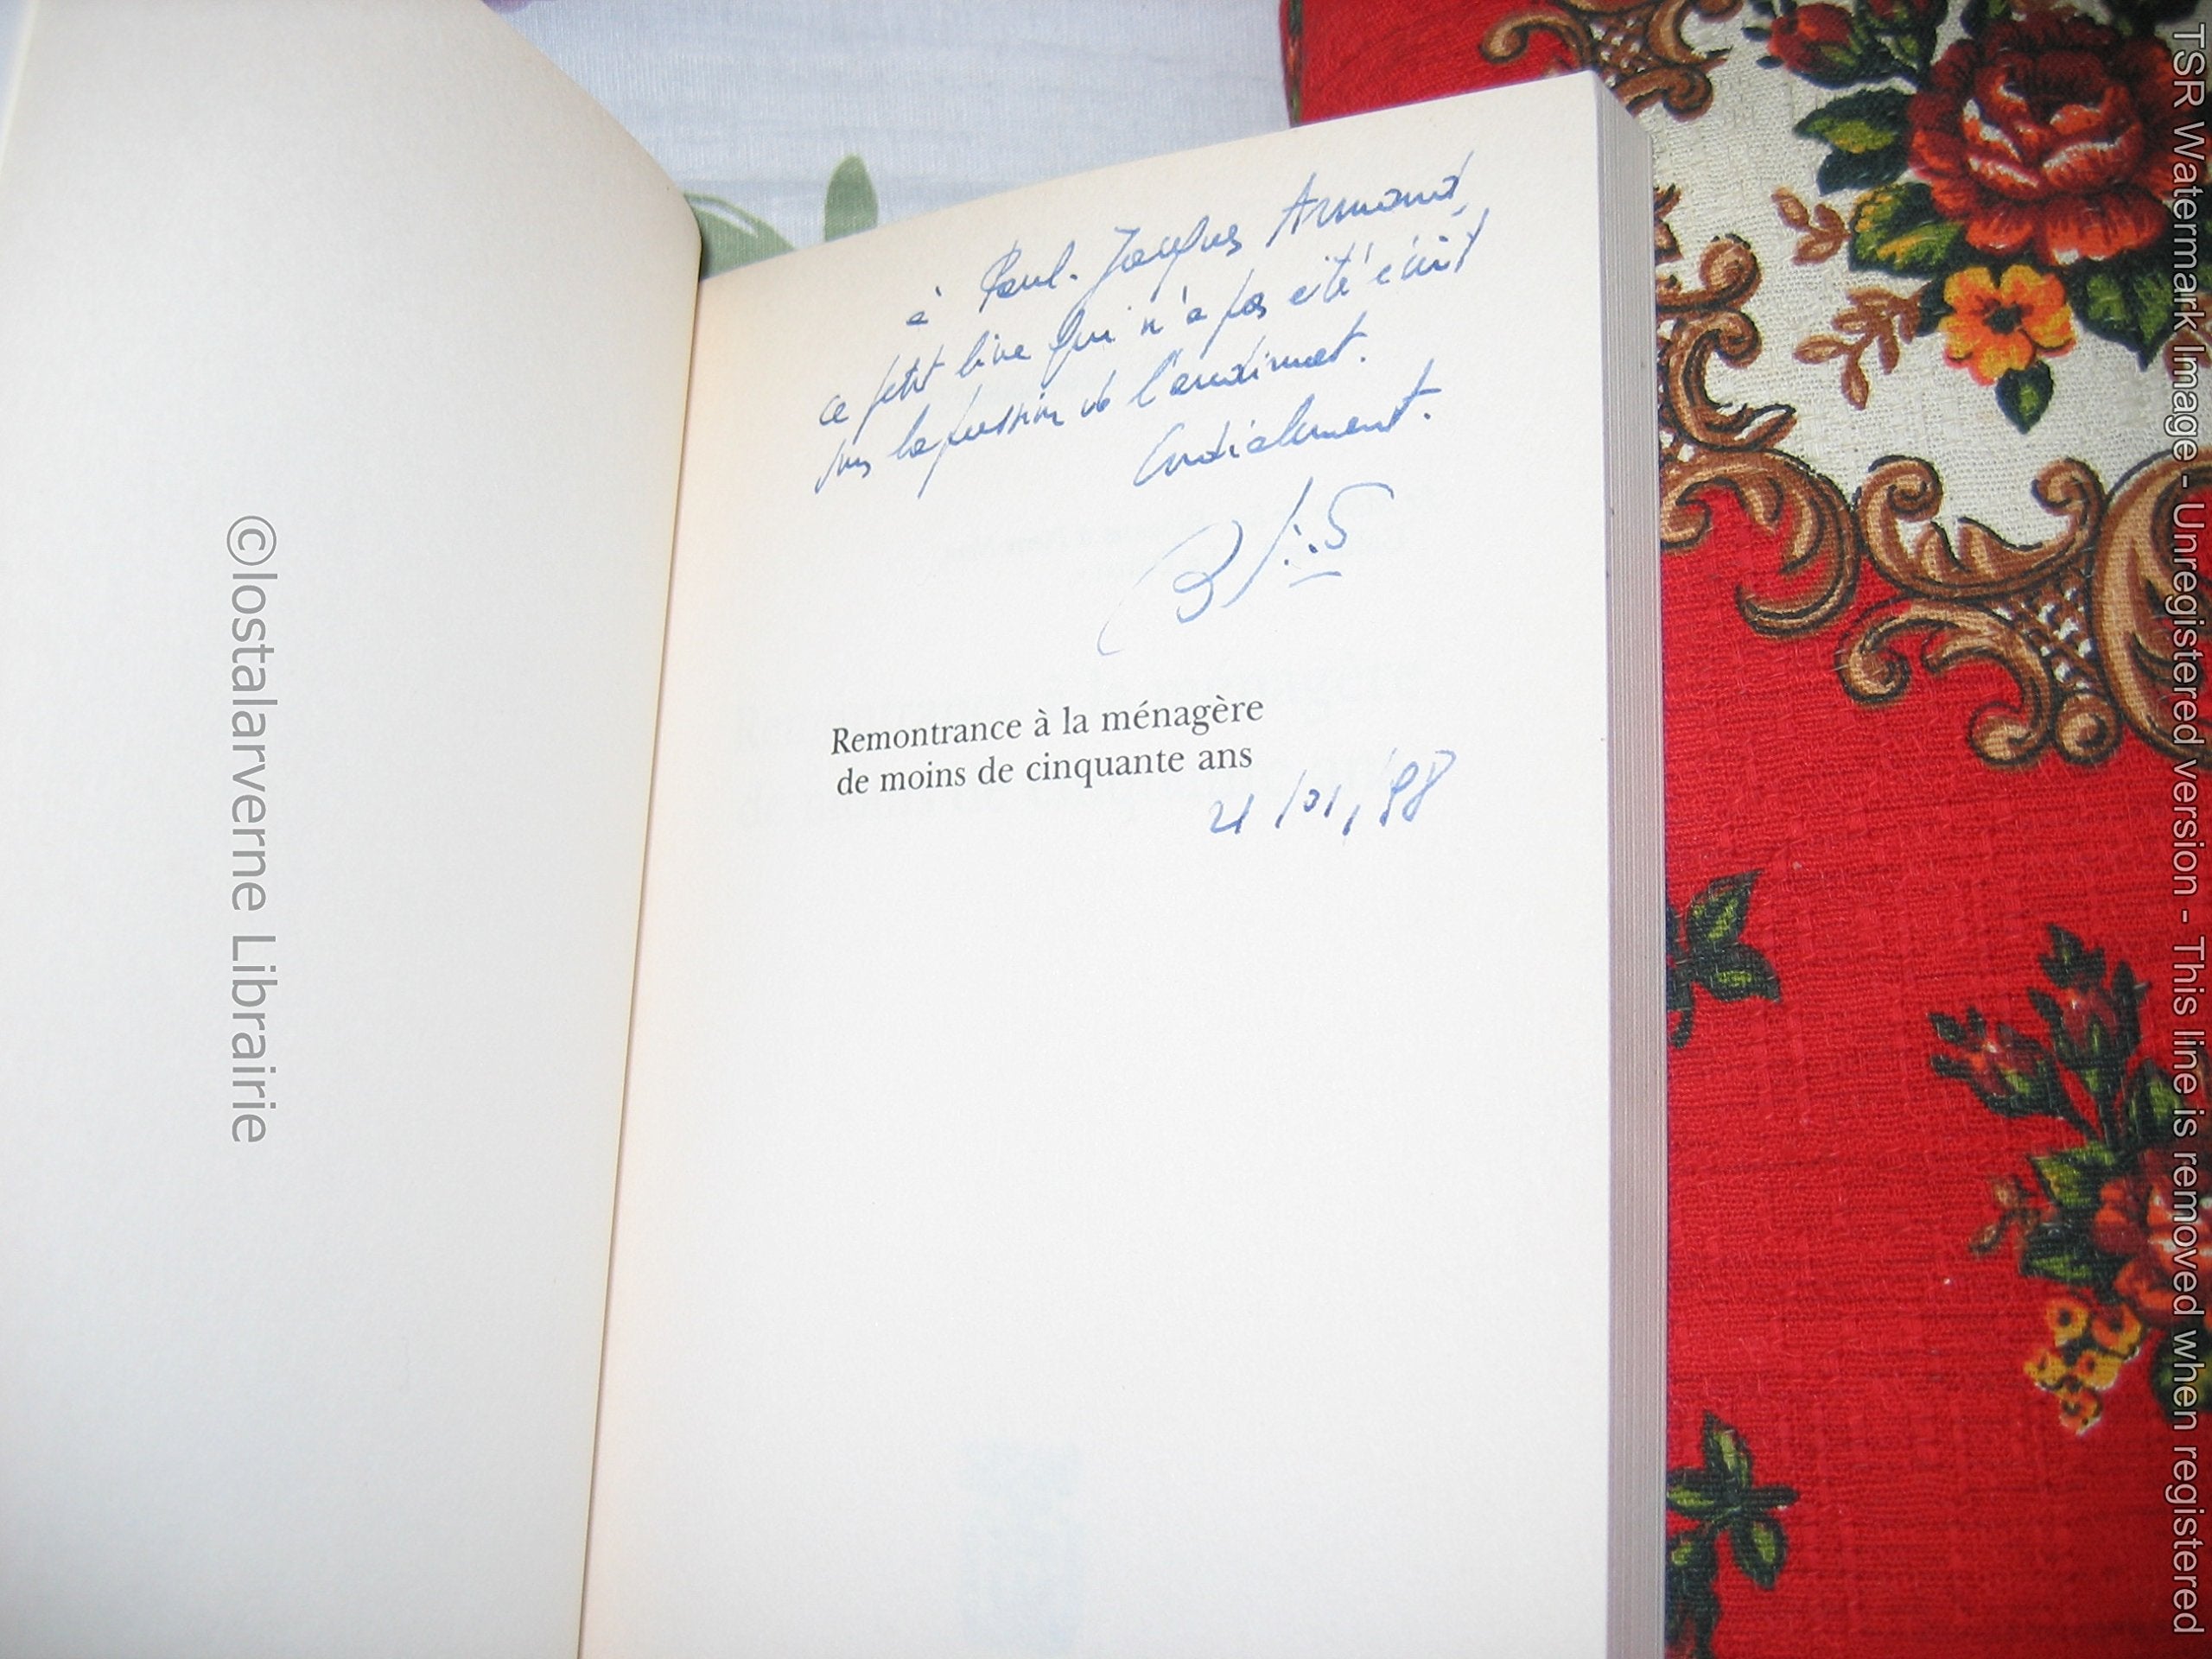 à Paul-Jacques Armand,
ce petit livre qui n'a pas été écrit
sous la pression de l'audimat.
Cordialement.
Remontrance à la ménagère
de moins de cinquante ans
21/01/98
©lostalarverne Librairie
TSR Watermark Image - Unregistered version - This line is removed when registered